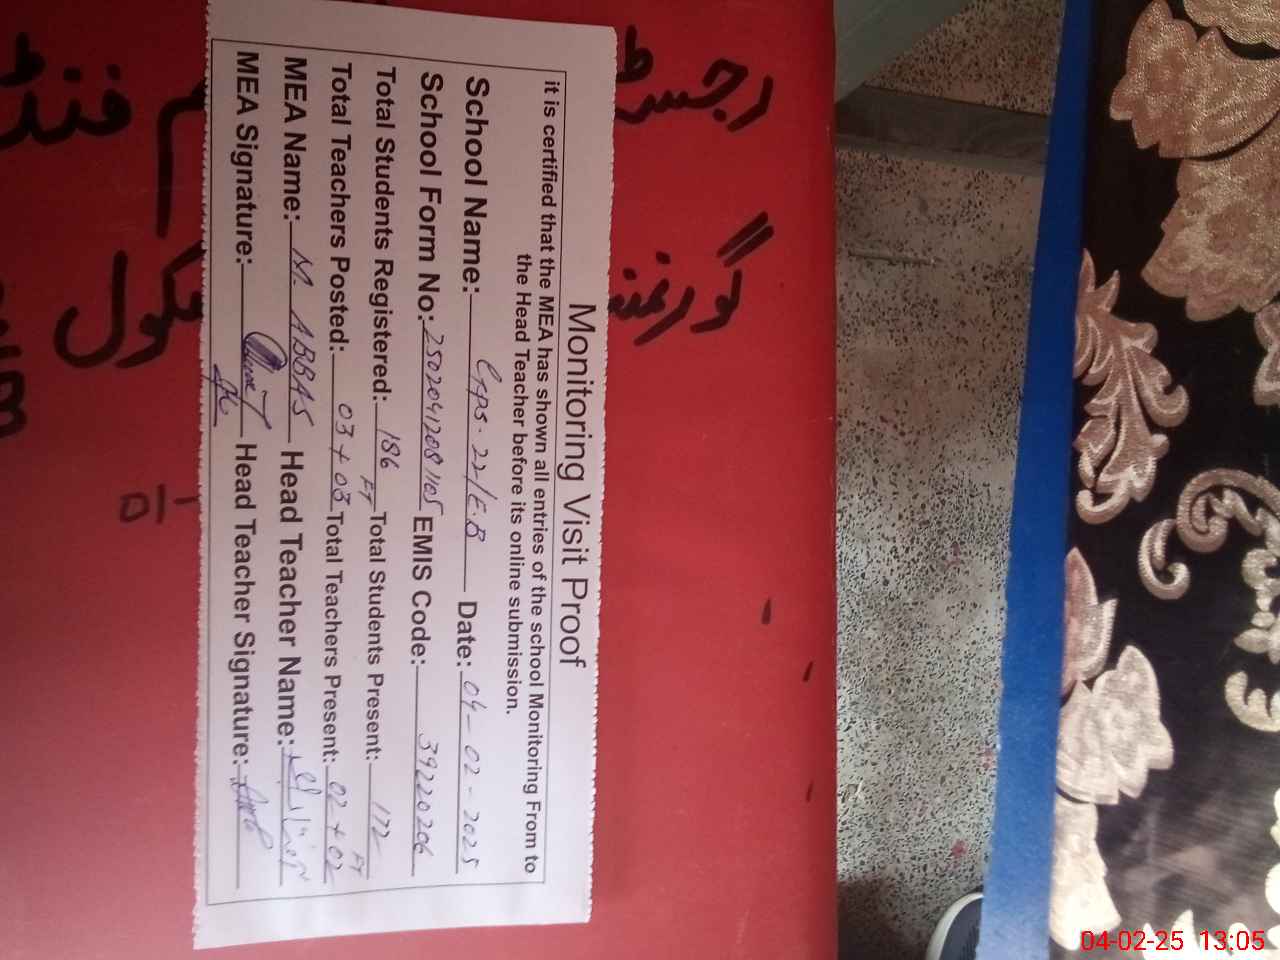 Monitoring Visit Proof
it is certified that the MEA has shown all entries of the school Monitoring From to
the Head Teacher before its online submission.
School Name: GPS. 22/E.B Date: 04-02-2025
School Form No: 25020412081105 EMIS Code: 39220206
Total Students Registered: 186 Total Students Present: 172
FT FT
Total Teachers Posted: 03 + 03 Total Teachers Present: 02 + 02
MEA Name: M. ABBAS Head Teacher Name:
MEA Signature: Head Teacher Signature:
فنڈ
گورنمنٹ
سکول
04-02-25 13:05